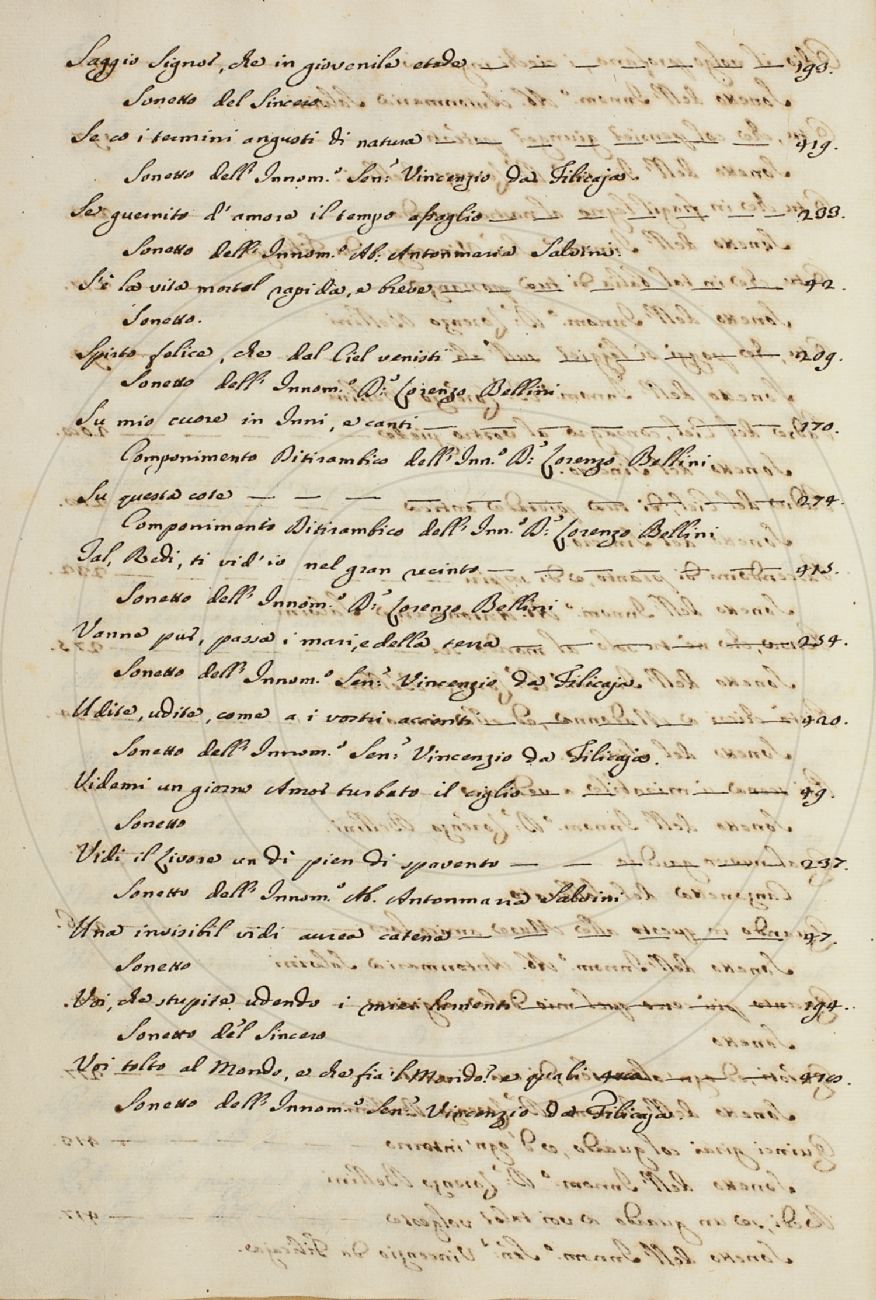 Saggio Signor, che in giovenile etade — — — — — 193.
Sonetto del Sincero
Se co i termini angusti di natura — — — — — 419.
Sonetto dell'Innom.º Sen.r Vincenzio da Filicaja.
Se guernito d'amore il tempo assaglio — — — — — 233.
Sonetto dell'Innom.º Ab. Antonmaria Salvini.
S'è la vita mortal rapida, e breve — — — — — 42.
Sonetto.
Spirto felice, che dal Ciel venisti — — — — — 209.
Sonetto dell'Innom.º D.r Lorenzo Bellini
Su mio cuore in Inni, e canti — — — — — 170.
Componimento Ditirambico dell'Inn.º D.r Lorenzo Bellini
Su questa cote — — — — — 274.
Componimento Ditirambico dell'Inn.º D.r Lorenzo Bellini
Tal, Redi, ti vid'io nel gran recinto — — — — — 413.
Sonetto dell'Innom.º D.r Lorenzo Bellini
Vanne pur, passa i mari, e della terra — — — — — 254.
Sonetto dell'Innom.º Sen.r Vincenzio da Filicaja.
Udite, udite, come a i vostri accenti — — — — — 420.
Sonetto dell'Innom.º Sen.r Vincenzio da Filicaja.
Videmi un giorno Amor turbato il ciglio — — — — — 49.
Sonetto
Vidi il Livore un dì pien di spavento — — — — — 237.
Sonetto dell'Innom.º Ab. Antonmaria Salvini
Una invisibil vidi aurea catena — — — — — 47.
Sonetto
Voi, che stupite udendo i miei — — — 194.
Sonetto del Sincero
Voi tolto al Mondo, e che fia 'l Mondo? e quali — — — 410.
Sonetto dell'Innom.º Sen.r Vincenzio da Filicaja.